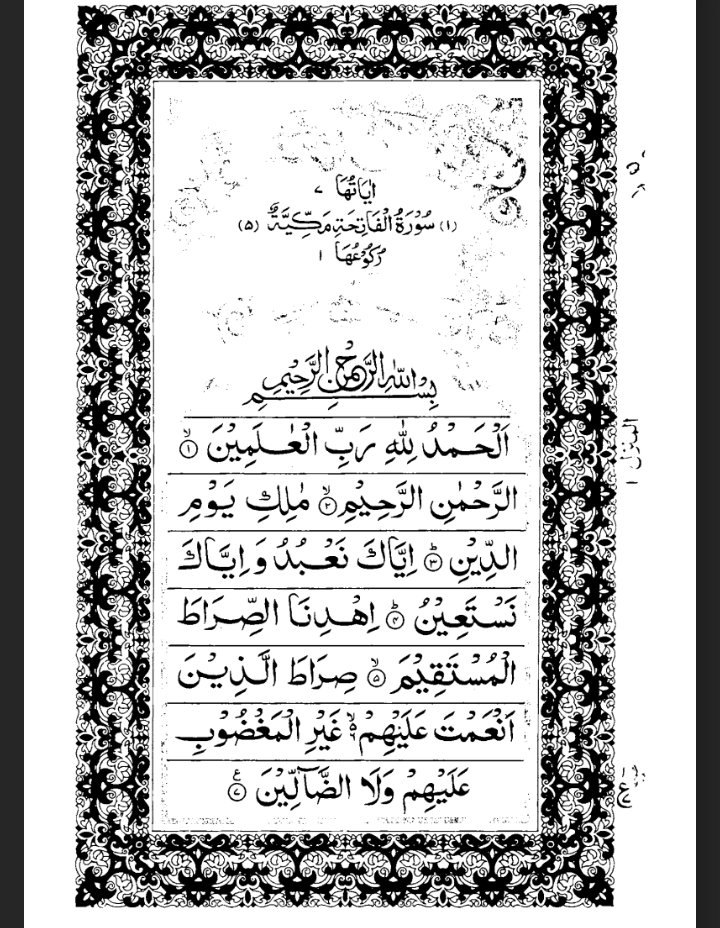 اٰيَاتُهَا ٧
(١) سُوْرَةُ الْفَاتِحَةِ مَكِّيَّةٌ (٥)
رُكُوْعُهَا ١
بِسْمِ اللهِ الرَّحْمٰنِ الرَّحِيْمِ
اَلْحَمْدُ لِلّٰهِ رَبِّ الْعٰلَمِيْنَ ۙ﴿١﴾
الرَّحْمٰنِ الرَّحِيْمِ ۙ﴿٢﴾ مٰلِكِ يَوْمِ
الدِّيْنِ ؕ﴿٣﴾ اِيَّاكَ نَعْبُدُ وَ اِيَّاكَ
نَسْتَعِيْنُ ؕ﴿٤﴾ اِهْدِنَا الصِّرَاطَ
الْمُسْتَقِيْمَ ۙ﴿٥﴾ صِرَاطَ الَّذِيْنَ
اَنْعَمْتَ عَلَيْهِمْ ۙ۬ۙ غَيْرِ الْمَغْضُوْبِ
عَلَيْهِمْ وَلَا الضَّآلِّيْنَ ﴿٧﴾ ع
المنزل ١